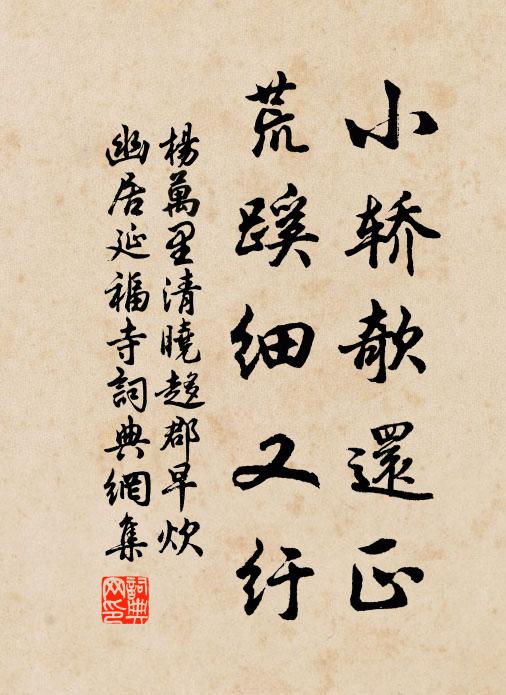 小轿欹還正
荒蹊細又紆
楊萬里清曉趍郡早炊
幽居延福寺詞典網集
詞典
网印